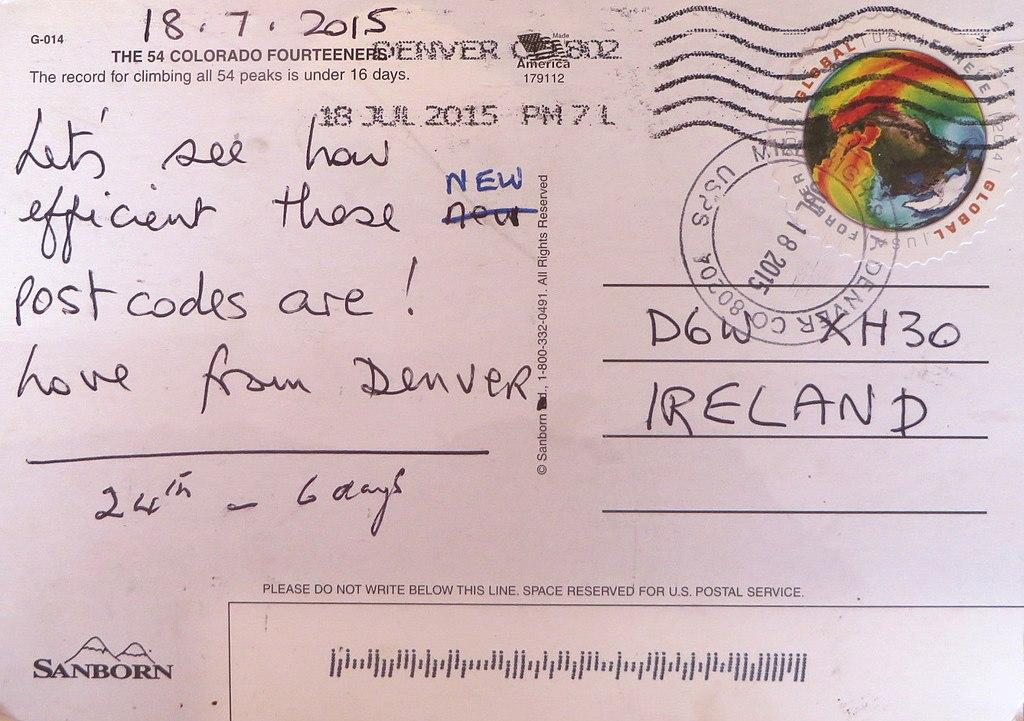 18.7.2015
G-014
THE 54 COLORADO FOURTEENERS
The record for climbing all 54 peaks is under 16 days.
DENVER CO 802
Made
America
179112
18 JUL 2015 PM 7 L
Let's see how
efficient these new NEW
postcodes are!
Love from DENVER.
24th - 6 days
© Sanborn Ltd., 1-800-332-0491. All Rights Reserved
GLOBAL
FOREVER
GLOBAL
USPS
DENVER CO 80201
18 2015
D6W XH30
IRELAND
PLEASE DO NOT WRITE BELOW THIS LINE. SPACE RESERVED FOR U.S. POSTAL SERVICE.
SANBORN